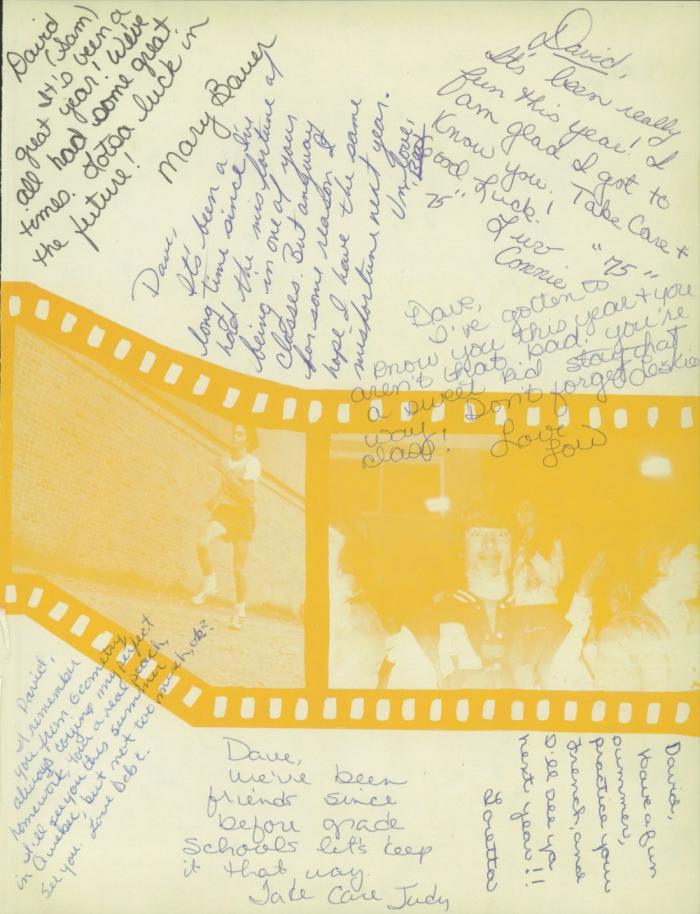 David
(Sam)
It's been a
great year! We've
all had some great
times. Lotsa luck in
the future!
Mary Bauer
Dave,
It's been a
long time since I've
had the misfortune of
being in one of your
classes. But anyway
for some reason I
hope I have the same
misfortune next year.
Luv,
"75"
David,
It's been really
fun this year! I
am glad I got to
know you. Take Care &
Good Luck!
Luv
Connie "75"
Dave,
I've gotten to
know you this year & you
aren't that bad! you're
a sweet kid stay that
way! Don't forget
class! Love
Lou
David,
I remember
you from Geometry
always copying my perfect
homework. You're a real peach,
I'll see you this summer
in Quebec, but not too much, ok?
See you. Love Deb C.
Dave,
We've been
friends since
before grade
school, let's keep
it that way.
Take Care Judy
David,
Have a fun
summer,
practice your
french, and
I'll see ya
next year!!
Loretta